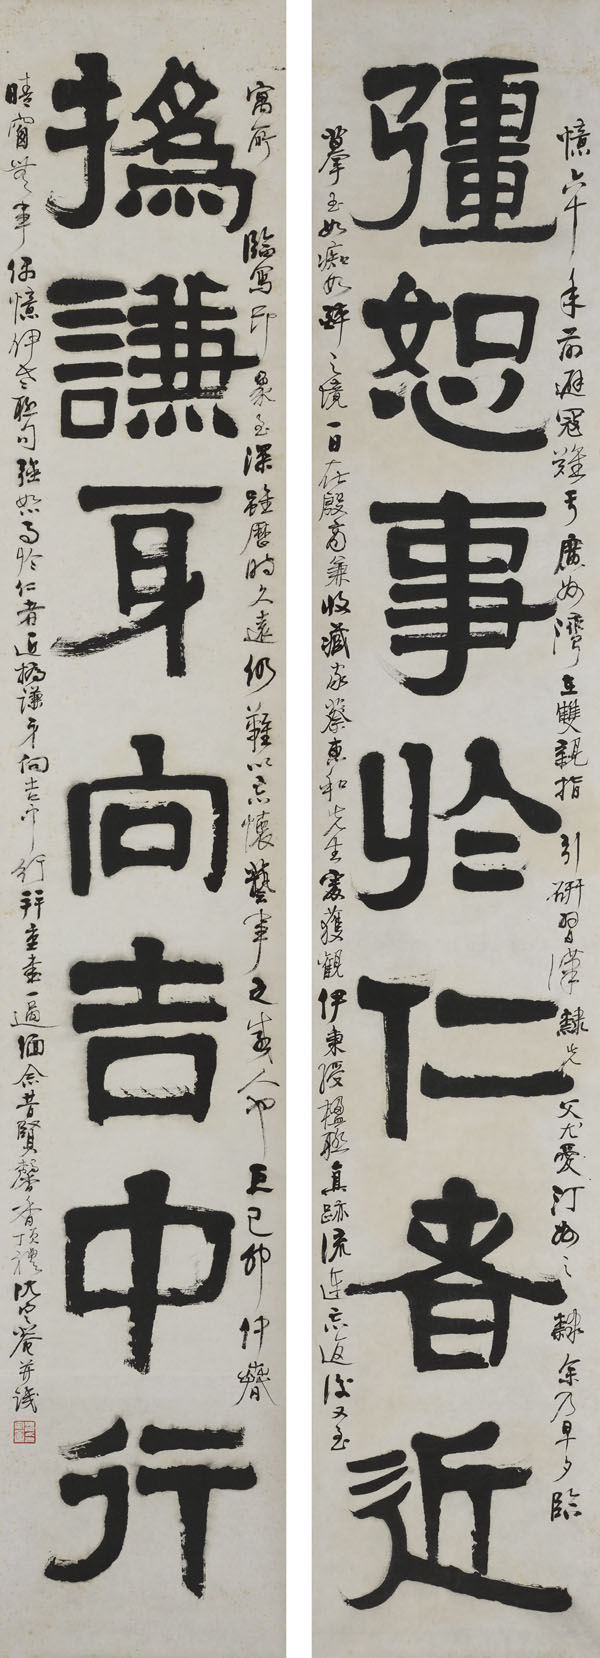 憶六十年前避寇難于廣州灣在雙親指引研習漢隸先父尤愛汀州之隸余乃早夕臨
彊恕事於仁者近
摹至如痴如醉之境一日在殷商兼收藏家蔡東和先生處獲觀伊秉綬楹聯真跡流連忘返後又至
寓所臨寫印象至深雖歷時久遠仍難以忘懷藝事之感人如是己卯仲
撝謙身向吉中行
晴窗無事偶憶伊老聯句強恕事於仁者近撝謙身向吉中行并書一過緬念昔賢馨香頂禮沈菴并識